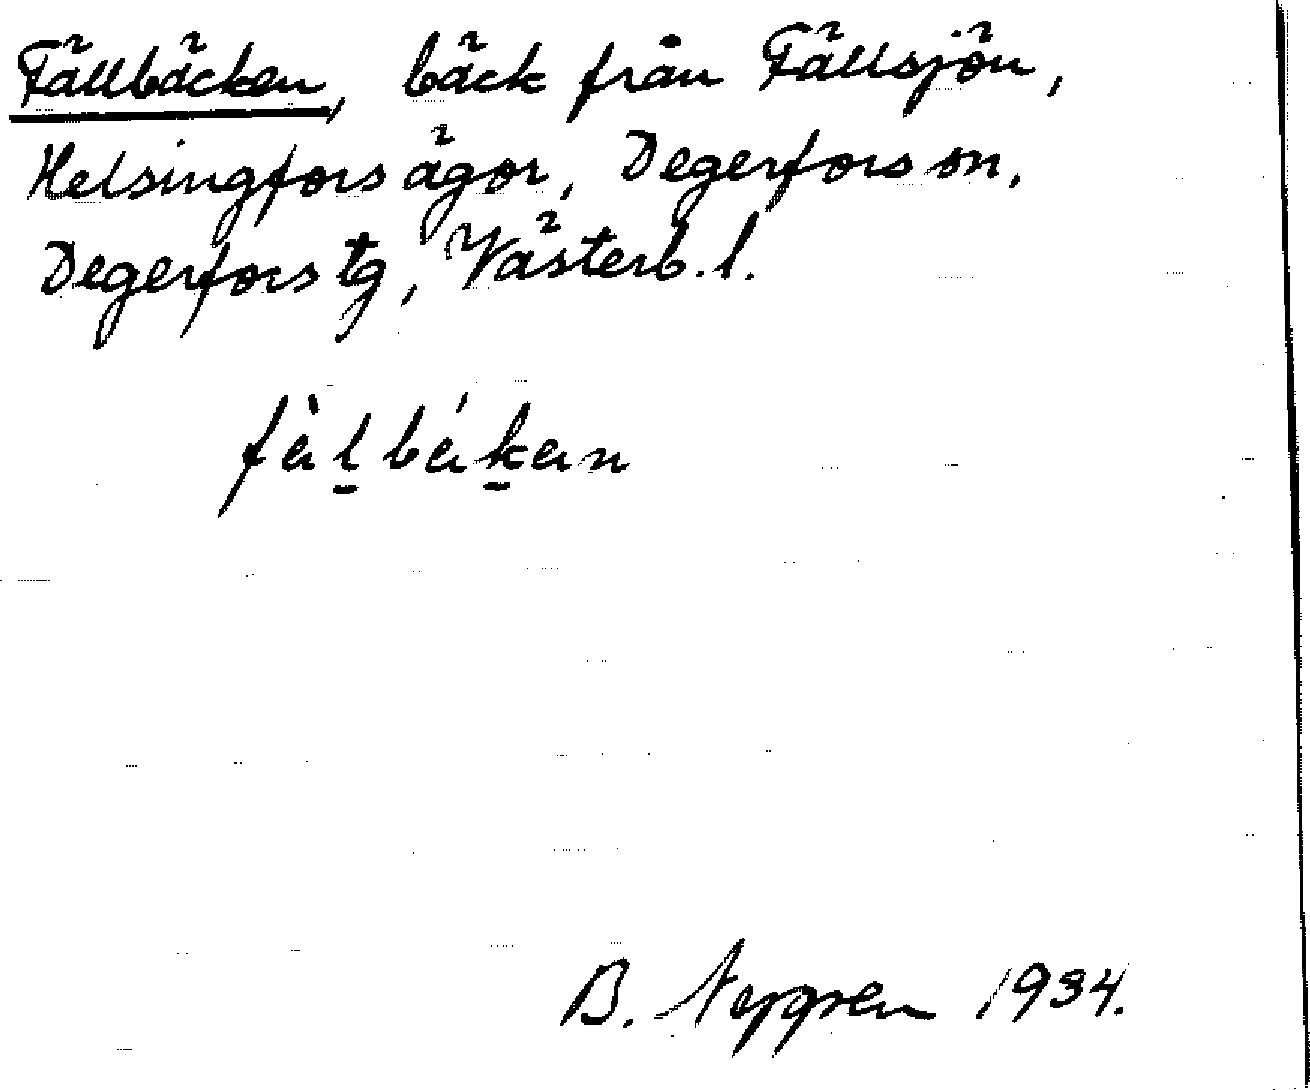 Fällbäcken, bäck från Fällsjön,
Helsingfors ägor, Degerfors sn,
Degerfors tg, Västerb. l.
fàl̠bák̠an
B. 1934.